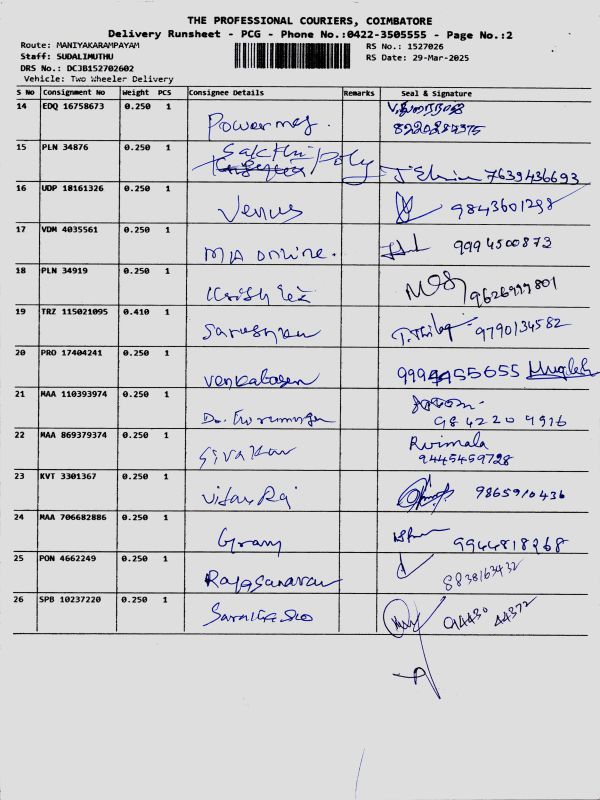 THE PROFESSIONAL COURIERS, COIMBATORE
Delivery Runsheet - PCG - Phone No.:0422-3505555 - Page No.:2
Route: MANIYAKARAMPAYAM RS No.: 1527026
Staff: SUDALIMUTHU RS Date: 29-Mar-2025
DRS No.: DCJB152702602
Vehicle: Two Wheeler Delivery
S No Consignment No Weight PCS Consignee Details Remarks Seal & Signature
14 EDQ 16758673 0.250 1
8220284375
15 PLN 34876 0.250 1 Sakthi Poly 7639436693
16 UDP 18161326 0.250 1 Venus 9843601298
17 VDM 4035561 0.250 1 MA online. 9994500873
18 PLN 34919 0.250 1 9626999801
19 TRZ 115021095 0.410 1 9790134582
20 PRO 17404241 0.250 1
21 MAA 110393974 0.250 1
984220 4916
22 MAA 869379374 0.250 1 Rvimala
9445459728
23 KVT 3301367 0.250 1 9865910436
24 MAA 706682886 0.250 1 9944818268
25 PON 4662249 0.250 1 8838163432
26 SPB 10237220 0.250 1 94430 44372